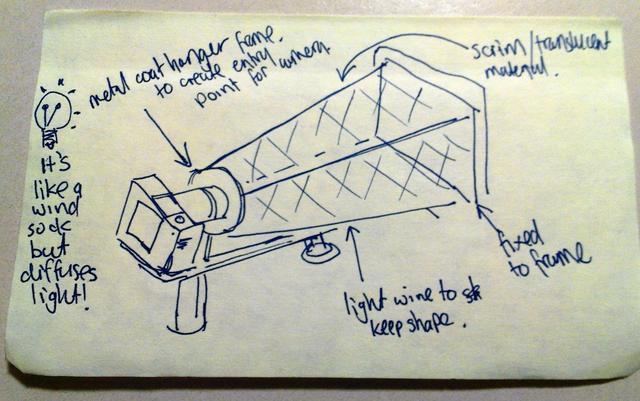 metal coat hanger frame.
to create entry
point for camera
scrim/translucent
material.
It's
like a
wind
sock
but
diffuses
light!
fixed
to frame
light wire to
keep shape.